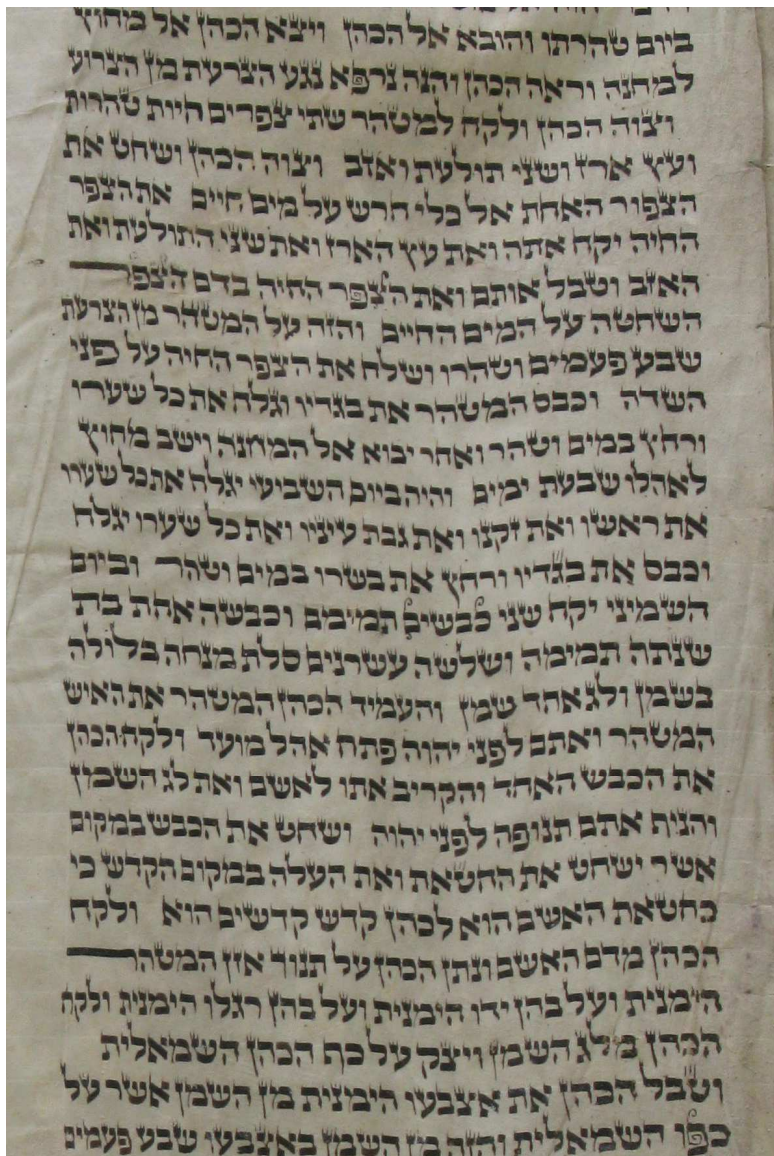 ביום טהרתו והובא אל הכהן ויצא הכהן אל מחוץ
למחנה וראה הכהן והנה נרפא נגע הצרעת מן הצרוע
וצוה הכהן ולקח למטהר שתי צפרים חיות טהרות
ועץ ארז ושני תולעת ואזב וצוה הכהן ושחט את
הצפור האחת אל כלי חרש על מים חיים את הצפר
החיה יקח אתה ואת עץ הארז ואת שני התולעת ואת
האזב וטבל אותם ואת הצפר החיה בדם הצפר
השחטה על המים החיים והזה על המטהר מן הצרעת
שבע פעמים וטהרו ושלח את הצפר החיה על פני
השדה וכבס המטהר את בגדיו וגלח את כל שערו
ורחץ במים וטהר ואחר יבוא אל המחנה וישב מחוץ
לאהלו שבעת ימים והיה ביום השביעי יגלח את כל שערו
את ראשו ואת זקנו ואת גבת עיניו ואת כל שערו יגלח
וכבס את בגדיו ורחץ את בשרו במים וטהר וביום
השמיני יקח שני כבשים תמימים וכבשה אחת בת
שנתה תמימה ושלשה עשרנים סלת מנחה בלולה
בשמן ולג אחד שמן והעמיד הכהן המטהר את האיש
המטהר ואתם לפני יהוה פתח אהל מועד ולקח הכהן
את הכבש האחד והקריב אתו לאשם ואת לג השמן
והניף אתם תנופה לפני יהוה ושחט את הכבש במקום
אשר ישחט את החטאת ואת העלה במקום הקדש כי
כחטאת האשם הוא לכהן קדש קדשים הוא ולקח
הכהן מדם האשם ונתן הכהן על תנוך אזן המטהר
הימנית ועל בהן ידו הימנית ועל בהן רגלו הימנית ולקח
הכהן מלג השמן ויצק על כף הכהן השמאלית
וטבל הכהן את אצבעו הימנית מן השמן אשר על
כפו השמאלית והזה מן השמן באצבעו שבע פעמים